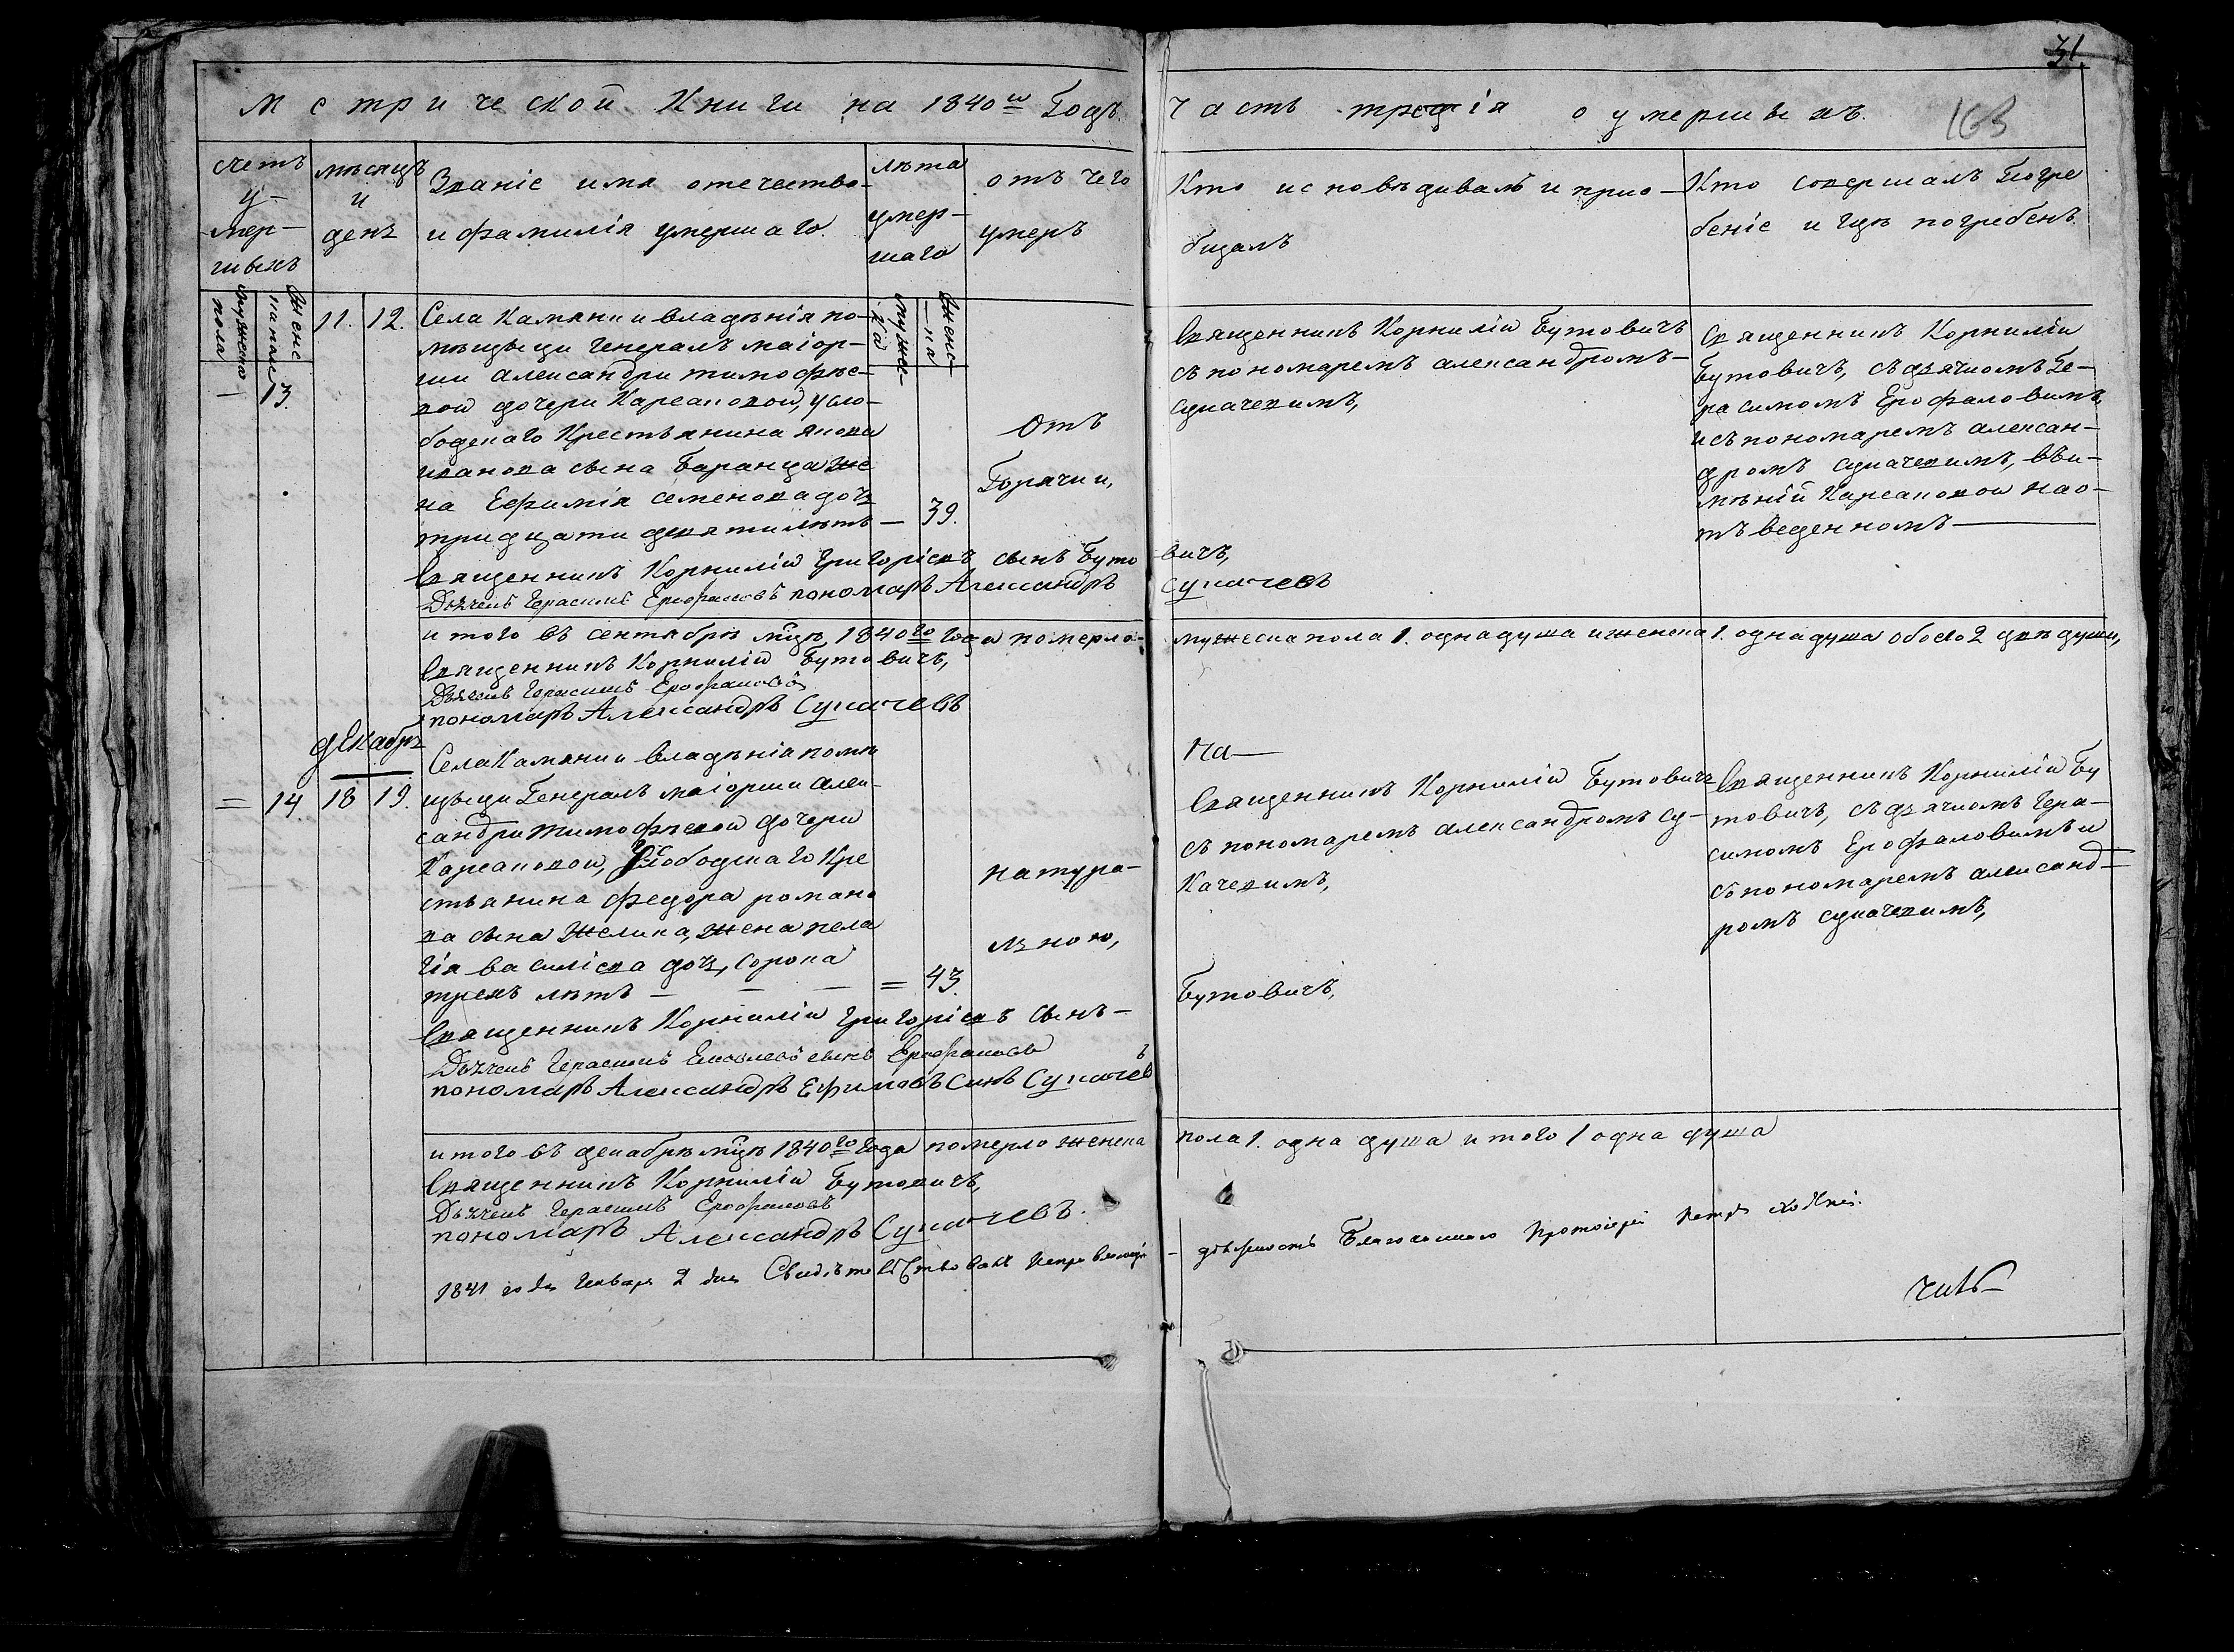 31.
Метрической Книги на 1840й Годъ.
Часть третія о умершихъ.
163
счетъ умер-шихъ
мужеска пола
женска пола
мѣсяцъ и день
Званіе имя отечество
и фамилія умершаго.
лѣта умер-шаго
мужес-ка
женс-ка
отъ чего
умеръ
Кто исповѣдивалъ и прио-
бщалъ
Кто совершалъ Погре
беніе и гдѣ погребенъ
— 13. 11. 12.
Села Камянки владѣнія по-
мѣщыци Генералъ маіор-
ши александри тимофѣе-
вои дочери Карсаковои, усло-
боденаго Крестьянина якова
иванова сына Баранца же
на Ефимія Семенова доч
тридцати девяти лѣтъ — 39.
Отъ
Горячки,
Священникъ Корнилій Бутовичъ
съ пономаремъ александромъ
Сукачевимъ,
Священникъ Корнилій
Бутовичъ, съ дячкомъ Ге-
расимомъ Ерофаловимъ
и съ пономаремъ алексан-
дромъ Сукачевимъ, въ и-
мѣніи Карсаковои на о-
тъведенномъ
Священникъ Корнилій Григоріевъ сынъ Буто
вичъ,
Дьячекъ Герасимъ Ерофаловъ пономарь Александръ
Сукачевъ
итого въ сентябрѣ мцѣ 1840го года померло
мужеска пола 1. одна душа и женска 1. одна душа обоего 2 двѣ души,
Священникъ Корнилій Бутовичъ,
Дьячекъ Герасимъ Ерофаловъ
пономарь Александръ Сукачевъ
декабрь
= 14. 18 19.
Села Камянки владѣнія помѣ
щыци Генералъ маіорши алек-
сандри Тимофѣевои дочери
Карсаковои, Услободенаго Кре
стьянина Федора романо
ва сына Желика, жена пела
гія василіева доч, сорока
трехъ лѣтъ — — — = 43.
натура-
льною,
На—
Священникъ Корнилій Бутовичъ
съ пономаремъ александромъ Су-
качевимъ,
Священникъ Корнилій Бу
товичъ, съ дячкомъ Гера-
симомъ Ерофаловимъ и
съ пономаремъ александ-
ромъ Сукачевимъ,
Священникъ Корнилій Григоріевъ сынъ
Бутовичъ,
Дьячекъ Герасимъ Яковлевъ сынъ Ерофаловъ
пономарь Александръ Ефимовъ Синъ Сукачевъ
итого въ декабрѣ мцѣ 1840го года померло женска
пола 1. одна душа итого 1 одна душа
Священникъ Корнилій Бутовичъ,
Дьячекъ Герасимъ Ерофаловъ
пономарь Александръ Сукачевъ.
1841 года Генваря 2 дня Свидѣтельствовалъ
должность Благочиннаго Протоіерей Петръ